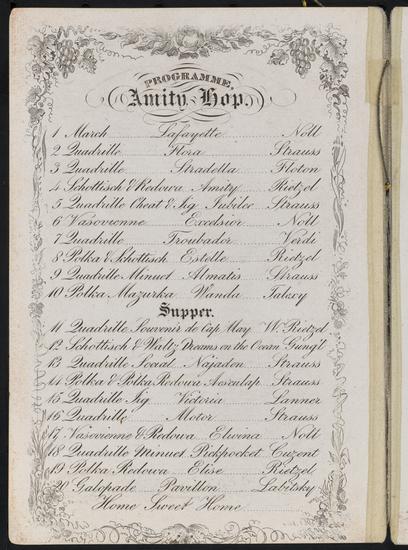 PROGRAMME.
Amity Hop.
1 March Lafayette Noll
2 Quadrille Flora Strauss
3 Quadrille Stradella Floton
4 Schottisch & Redowa Amity Rietzel
5 Quadrille Cheat & Jig Jubilee Strauss
6 Vasovienne Excelsior Noll
7 Quadrille Troubador Verdi
8 Polka & Schottisch Estelle Rietzel
9 Quadrille Minuet Almatis Strauss
10 Polka Mazurka Wanda Talexy
Supper.
11 Quadrille Souvenir de Cap May W. Rietzel
12 Schottisch & Waltz Dreams on the Ocean Gung'l
13 Quadrille Social Najaden Strauss
14 Polka & Polka Redowa Aesculap Strauss
15 Quadrille Jig Victoria Lanner
16 Quadrille Motor Strauss
17 Vasovienne & Redowa Elvina Noll
18 Quadrille Minuet Pickpocket Cuzent
19 Polka Redowa Elise Rietzel
20 Galopade Pavillon Labitsky
Home Sweet Home